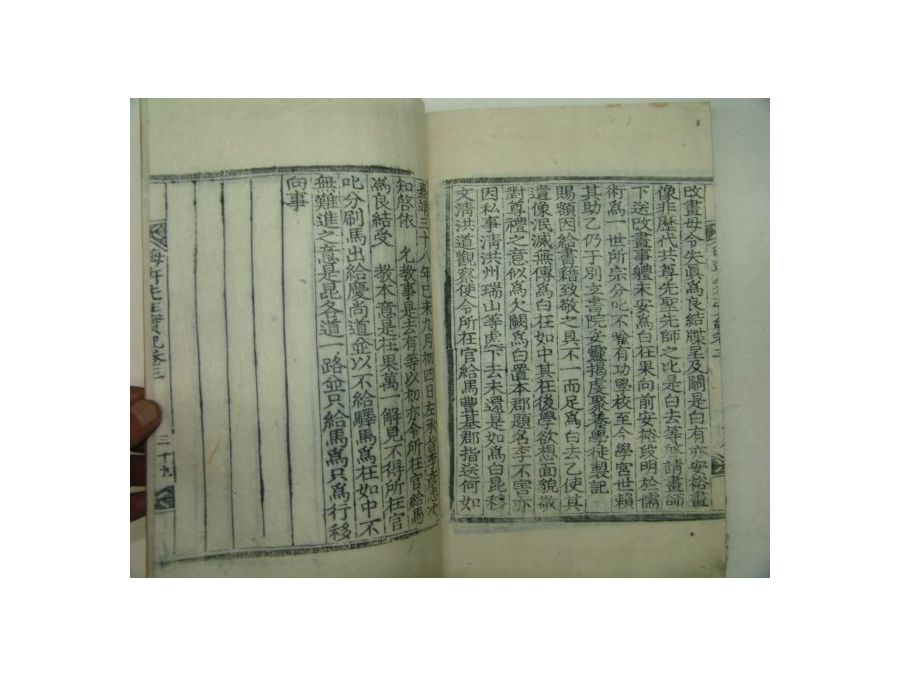 改畫毋令失眞爲良結牒呈及關是白有亦安裕畫
像非歷代共尊先聖先師之比是白去等啓請畫師
下送改畫事體未安爲白在果向前安裕段明於儒
術爲一世所宗分叱不喩有功學校至今學宮世賴
其助乙仍于別立書院妥靈揭虔聚養學徒製記
賜額因給書籍致敬之具不一而足爲白去乙使其
遺像泯滅無傳爲白在如中其在後學欲想面貌敬
對尊禮之意似爲欠闕爲白置本郡題名李不害亦
因私事淸洪州瑞山等處下去未還是如爲白昆移
文淸洪道觀察使令所在官給馬豊基郡指送何如
嘉靖三十八年己未九月初四日左承旨李 次
知啓依 允教事是去有等以 亦令所在官給馬
爲良結受 教本意是在果萬一解見不得所在官
叱分刷馬出給慶尙道並以不給驛馬爲在如中不
無難進之意是昆各道一路並只給馬爲只爲行移
向事
晦軒先生實記卷三 二十九